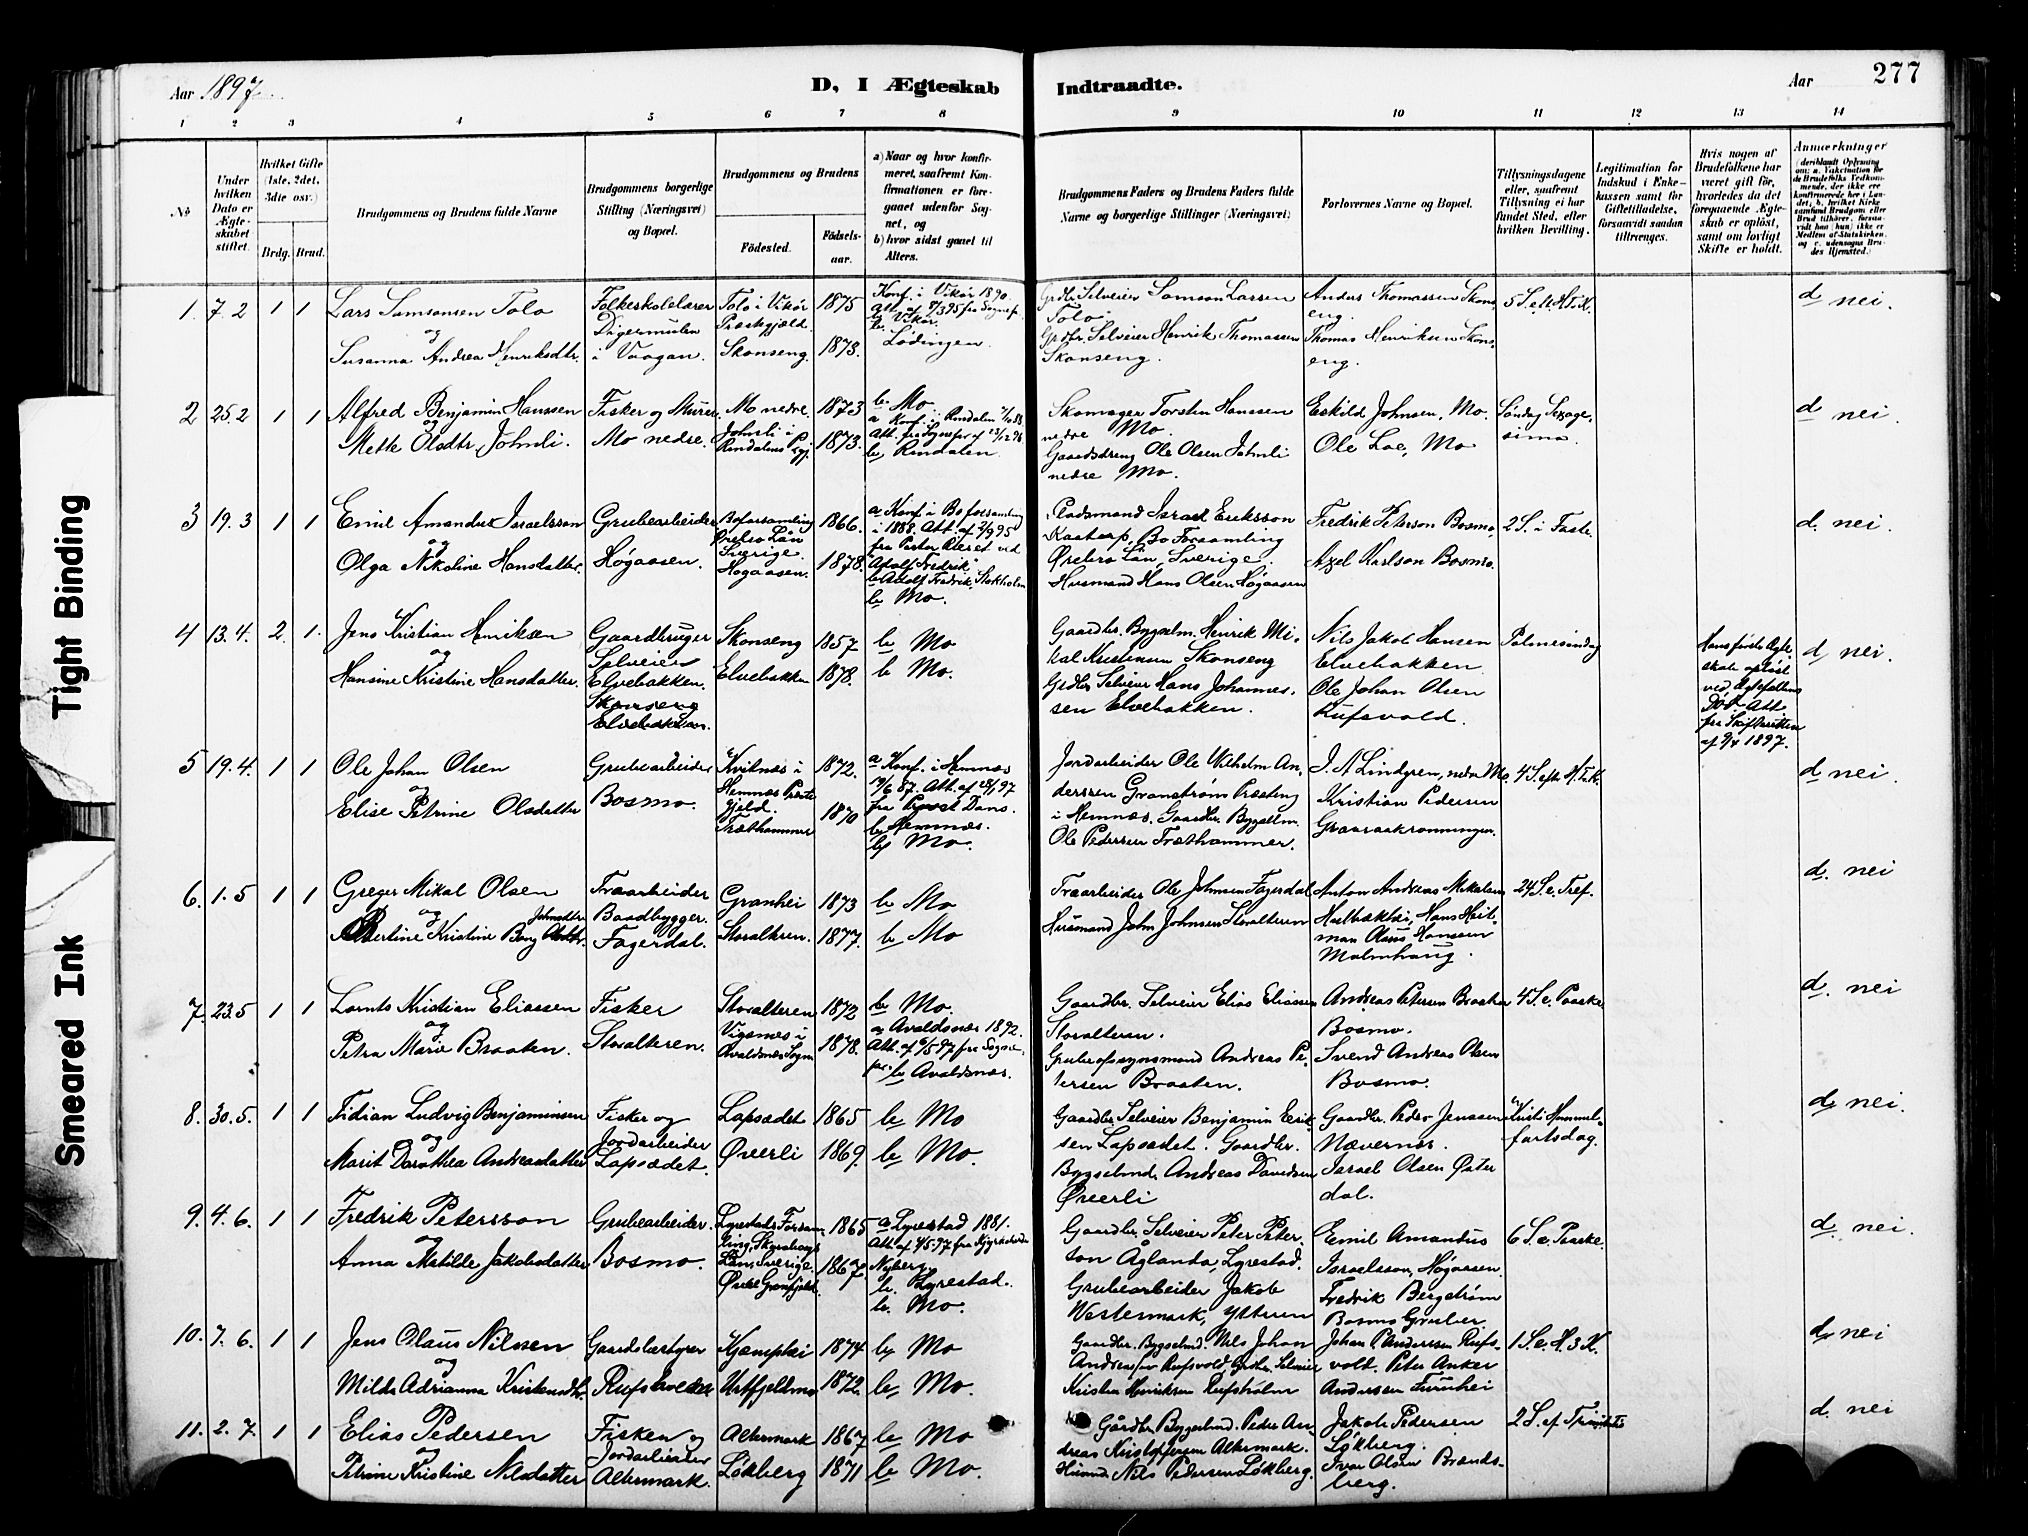 Aar 1897.
D, I Ægteskab
Indtraadte.
Aar
277
1 2 3 4 5 6 7 8 9 10 11 12 13 14
No
Under hvilken Dato er Ægteskabet stiftet.
Hvilket Gifte (1ste, 2det, 3die osv.)
Brdg. Brud.
Brudgommens og Brudens fulde Navne
Brudgommens borgerlige Stilling (Næringsvei) og Bopæl.
Brudgommens og Brudens
Fødested.
Fødselsaar.
a) Naar og hvor konfirmeret, saafremt Konfirmationen er foregaaet udenfor Sognet, og
b) hvor sidst gaaet til Alters.
Brudgommens Faders og Brudens Faders fulde Navne og borgerlige Stillinger (Næringsvei)
Forlovernes Navne og Bopæl.
Tillysningsdagene eller, saafremt Tillysning ei har fundet Sted, efter hvilken Bevilling.
Legitimation for Indskud i Enkekassen samt for Giftetilladelse, forsaavidt saadan tiltrænges.
Hvis nogen af Brudefolkene har været gift før, hvorledes da det foregaaende Ægteskab er opløst, samt om lovligt Skifte er holdt.
Anmærkninger
Tight Binding
Smeared Ink
1. 7.2 1 1
Lars Samsonsen Tolo
og
Susanna Andrea Henriksdtr.
Folkeskolelærer
Digermulen
i Vaagan.
Tolo i Vikør
Præstgjæld.
Skonseng.
1875
1873.
Konf. i Vikør 1890.
Att. af 8/3 95 fra Sognepr.
b. Vikør.
Lødingen
Grdbr. Selveier Samson Larsen
Tolo.
Grdbr. Selveier Henrik Thomassen
Skonseng.
Anders Thomassen Skonseng.
Thomas Henriksen Skonseng.
5 S. e. H. t. K.
d nei.
2 25.2 1 1
Alfred Benjamin Hanssen
og
Mette Olsdtr. Johnli.
Fisker og Murer
Mo nedre.
Mo nedre.
Johnli i
Rindalens Pgj.
1873
1873.
b. Mo
a Konf. i Rindalen
b. Rindalen.
Skomager Torsten Hanssen
nedre Mo.
Gaardsdreng Ole Olsen Johnli
nedre Mo.
Eskild Johnsen, Mo.
Ole Loe, Mo
Søndag Sexagesima.
d nei.
3 19.3 1 1
Emil Amandus Israelsson
og
Olga Nikoline Hansdatter.
Grubearbeider
Høgaasen.
Boforsamling
Ørebro Län
Sverige.
Høgaasen.
1866.
1878.
a Konf. i Bo forsamling
i 1888. Att. af 2/9 95
fra Pastor
"Adolf Fredrik"
b. Adolf Fredrik, Stokholm
b. Mo.
Israel Eriksson
Bo Forsamling
Ørebro Län, Sverige.
Husmand Hans Olsen Høgaasen
Fredrik Peterson Bosmo,
Axel Karlson Bosmo.
2 S. i Faste.
d. nei.
4 13.4. 2. 1.
Jens Kristian Henriksen
og
Hansine Kristine Hansdatter.
Gaardbruger
Selveier
Elvebakken.
Skonseng
Elvebakken.
Skonseng
Elvebakken
1857
1878.
b. Mo
b Mo.
Gaardbr. Bygselm. Henrik Mikal Kristensen Skonseng
Grdbr. Selveier Hans Johannessen Elvebakken.
Nils Jakob Hansen
Elvebakken
Ole Johan Olsen
Rufsvold.
Palmesøndag
Hans første Ægteskab opløst
ved Ægtefællens
Død. Att.
fra Skifteretten
af 9/4 1897.
d, nei.
5 19.4. 1 1
Ole Johan Olsen
og
Elise Petrine Olsdatter
Grubearbeider
Bosmo.
Kvitnæs i
Hemnæs Præstegjeld.
Træthammer
1872.
1870
a Konf. i Hemnæs
19/6 87. Att. af 28/1 97
fra Provst Dons.
b. Hemnæs.
b. Mo.
Jordarbeider Ole Wilhelm Anderssen Granstrøm Præsteng
i Hemnæs. Gaardbr. Bygselm.
Ole Pederssen Træthammer.
J. A. Lindgren, nedre Mo.
Kristian Pedersen
4 S. efter H. T. K.
d nei.
6. 1.5 1 1
Greger Mikal Olsen
og
Albertine Kristine Berg Johnsdtr.
Træarbeider
Baadbygger.
Fagerdal.
Granhei
Storalteren.
1873
1877.
b. Mo
b. Mo
Træarbeider Ole Johnsen Fagerdal
Husmand John Johnsen Storalteren
Anton Andreas Mikalsen
Hans Hartman Olaus Hansen
Malmhaug.
d. nei
7. 23.5 1 1
Lornts Kristian Eliassen
og
Petra Marie Braaten.
Fisker
Storalteren.
Storalteren
Vigsnæs i
Avaldsnæs Sogn
1872
1878.
b. Mo.
a, Avaldsnæs 1892.
Att. af 6/5 97 fra Sognepr. b. Avaldsnæs.
Gaardbr. Selveier Elias Eliassen
Storalteren.
Grubeopsynsmand Andreas Petersen Braaten.
Andreas Petersen Braaten
Bosmo.
Svend Andreas Olsen
Bosmo.
4 S. e. Paaske.
d. nei
8. 30.5. 1 1
Fidian Ludvig Benjaminsen
og
Marit Dorothea Andreasdatter
Fisker og
Jordarbeider
Lapsædet.
Lapsædet
Øverli
1865
1869.
b. Mo
b. Mo.
Gaardbr. Selveier Benjamin Eriksen Lapsædet. Gaardbr.
Bygselmd. Andreas Davidsen
Øverli
Gaardbr. Peder Jenssen
Nævernæs.
Israel Olsen Østerdal.
Kristi Himmelfartsdag.
d. nei.
9. 4.6. 1 1
Fredrik Petersson
og
Anna Matilde Jakobsdatter
Grubearbeider.
Bosmo.
Lyrestads Forsamling, Skaraborgs
Län, Sverige.
1865
1867
a Lyrestad 1881.
Att. af 2/5 97 fra Kyrkoherde
Nyberg.
b. Lyrestad.
b. Mo.
Gaardbr. Selveier Peter Peterson Aglanda, Lyrestad.
Grubearbeider Jakob
Westermark, Ytteren
Emil Amandus
Israelsson, Høgaasen.
Fredrik Bergstrøm
Bosmo Gruber.
6 S. e. Paaske.
d. nei.
10. 7.6. 1 1
Jens Olaus Nilssen
og
Milda Adrianna Kristensdtr.
Gaardsbestyrer
Kjæmphei
Urtfjeldmo
1874
1872.
b. Mo
b. Mo.
Gaardbr. Bygselmd. Nils Johan
Andreassen Rufsvold. Grdbr. Selveier
Kristen Henriksen Rufsholm
Johan P. Andersen Rufsvold. Peter Anker
Andersen Furuhei
1 S. e. H. 3 K.
d. nei
11. 2.7. 1 1
Elias Pedersen
og
Petrine Kristine Nilsdatter
Fisker og
Jordarbeider
Altermark.
Altermark
Løkberg
1867
1871
b. Mo
b. Mo.
Gårdbr. Bygselmd. Peder Andreas Kristoffersen Altermark.
Husmd. Nils Pedersen Løkberg.
Jakob Pedersen
Løkberg.
Ivar Olsen Brændsberg.
2 S. ef. Trinitatis
d. nei